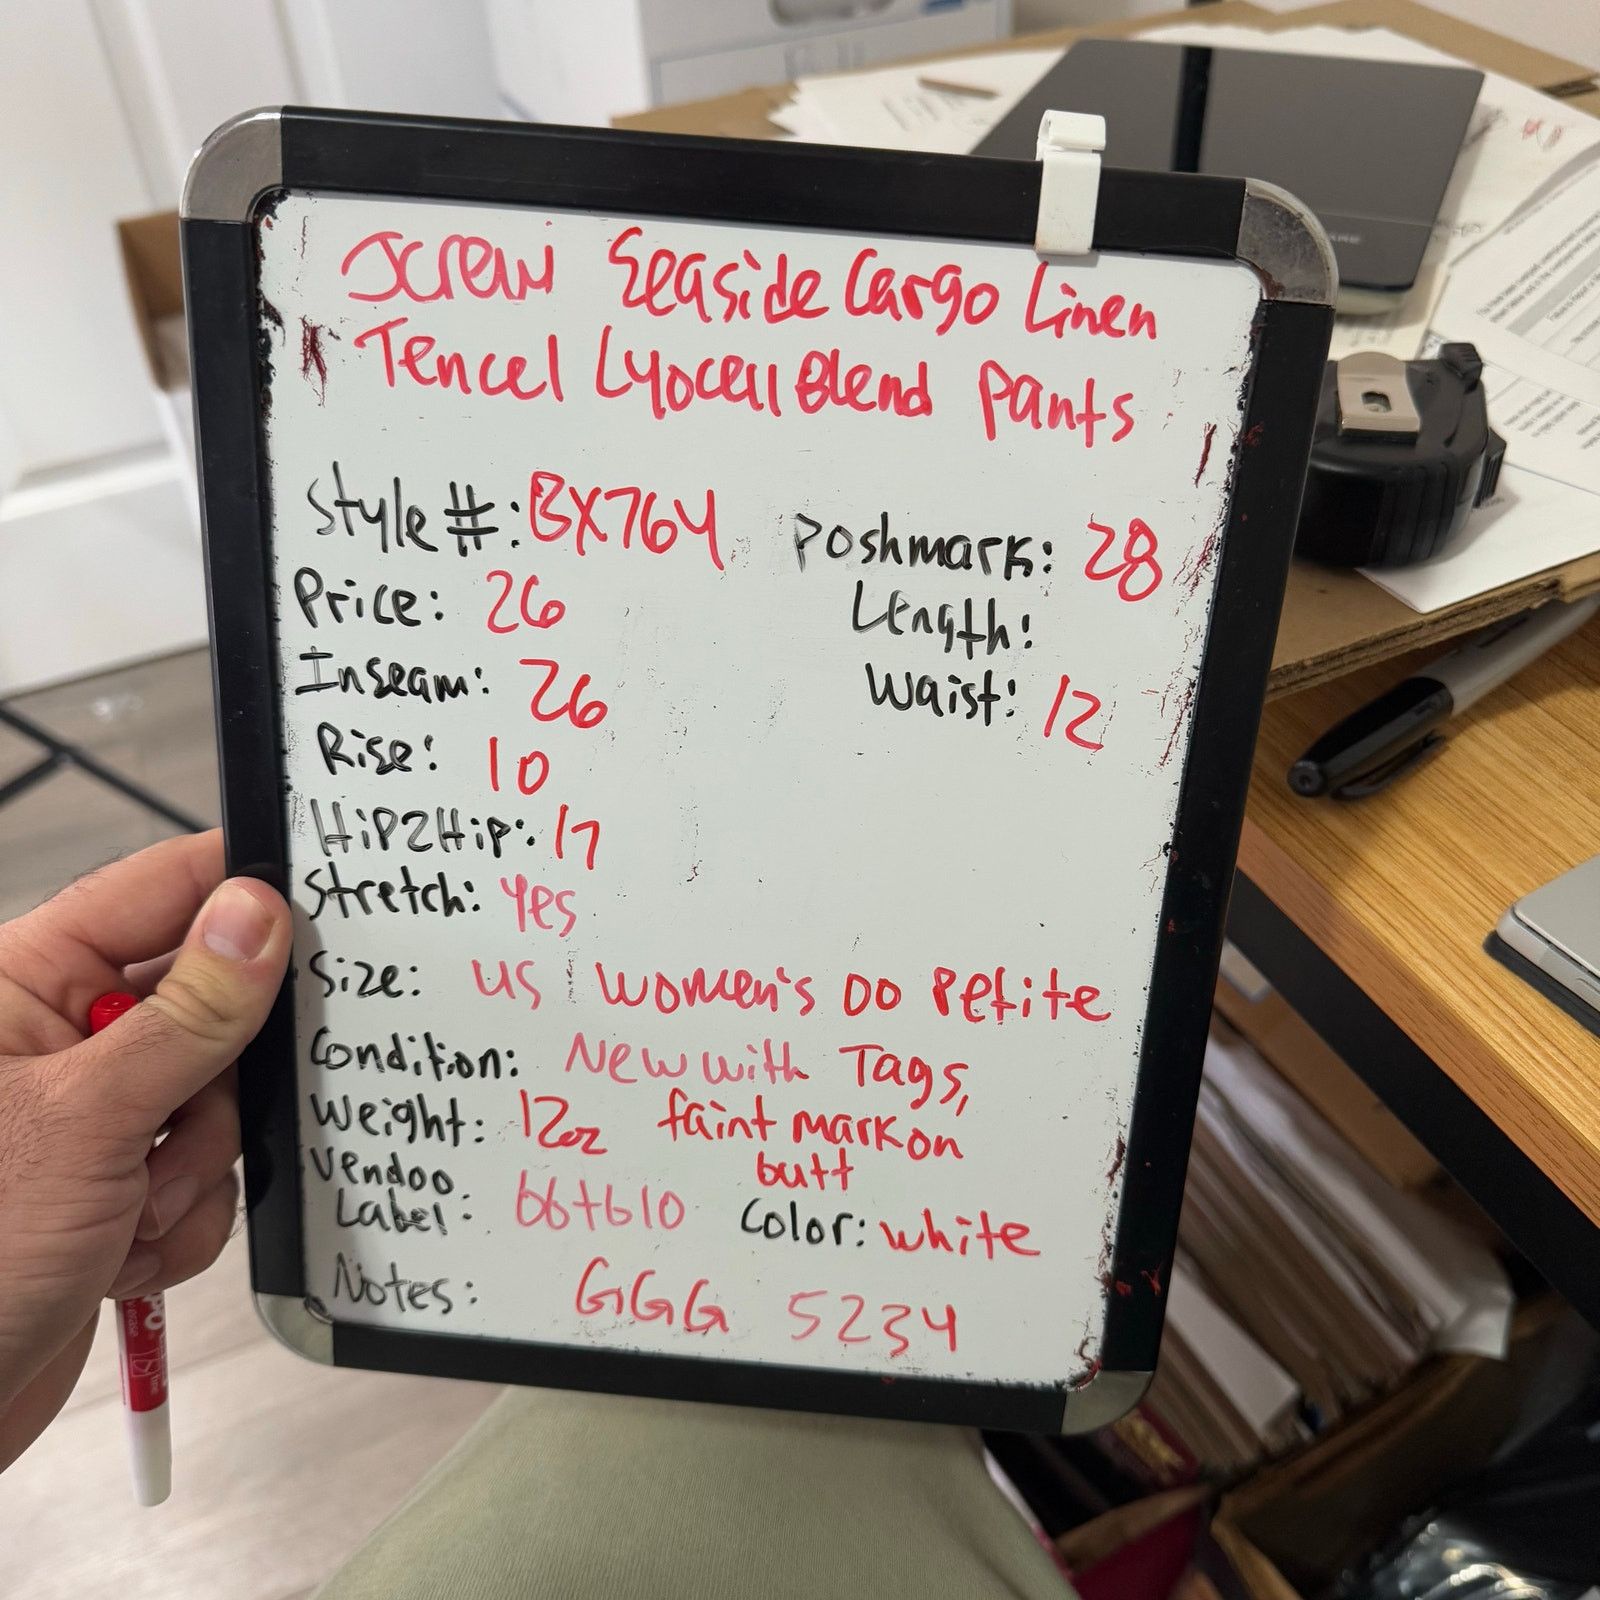 JCrew Seaside Cargo Linen
Tencel Lyocell Blend Pants
Style #: BX764
Price: 26
Inseam: 26
Rise: 10
Hip2Hip: 17
Stretch: Yes
Poshmark: 28
Length:
Waist: 12
Size: US Women's 00 Petite
Condition: New with Tags,
faint mark on
butt
Weight: 12oz
Vendoo
Label: bb+b10
Color: white
Notes: GGG 5234